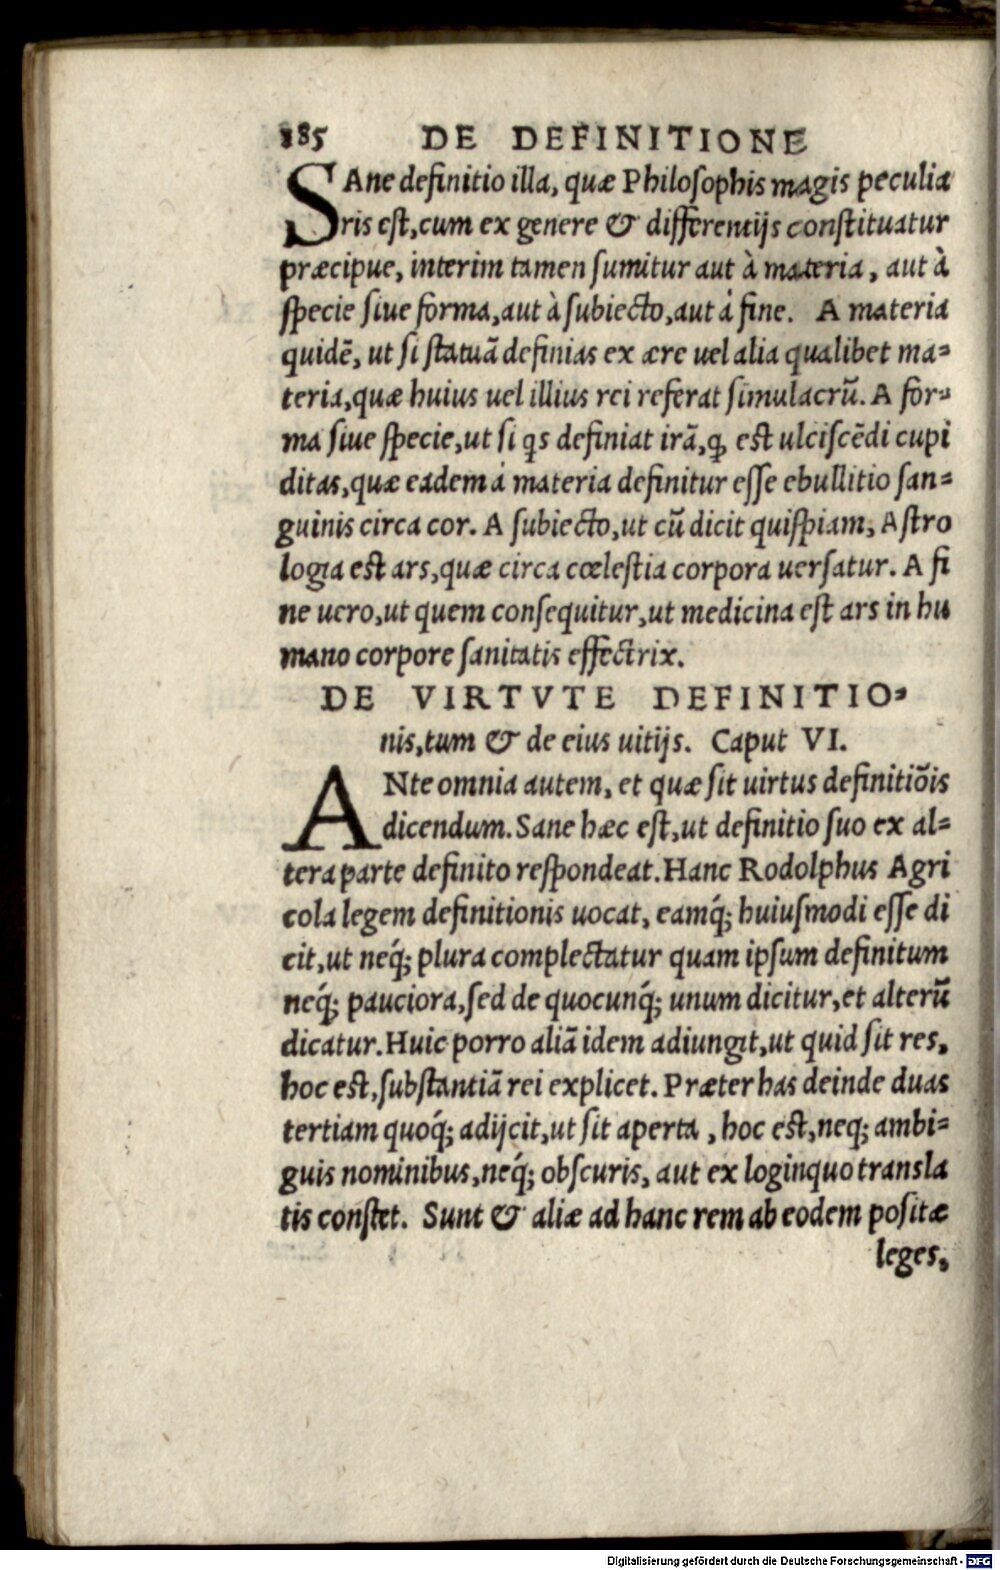 185 DE DEFINITIONE
SAne definitio illa, quæ Philosophis magis peculia
ris est, cum ex genere & differentijs constituatur
præcipue, interim tamen sumitur aut à materia, aut à
specie siue forma, aut à subiecto, aut á fine. A materia
quidē, ut si statuā definias ex ære uel alia qualibet ma=
teria, quæ huius uel illius rei referat simulacrū. A for=
ma siue specie, ut si qs definiat irā, ꝙ est ulciscēdi cupi
ditas, quæ eadem á materia definitur esse ebullitio san=
guinis circa cor. A subiecto, ut cū dicit quispiam, Astro
logia est ars, quæ circa cœlestia corpora uersatur. A fi
ne uero, ut quem consequitur, ut medicina est ars in hu
mano corpore sanitatis effectrix.
DE VIRTVTE DEFINITIO=
nis, tum & de eius uitijs. Caput VI.
ANte omnia autem, et quæ sit uirtus definitiōis
dicendum. Sane hæc est, ut definitio suo ex al=
tera parte definito respondeat. Hanc Rodolphus Agri
cola legem definitionis uocat, eamq́; huiusmodi esse di
cit, ut neq́; plura complectatur quam ipsum definitum
neq́; pauciora, sed de quocunq́; unum dicitur, et alterū
dicatur. Huic porro aliā idem adiungit, ut quid sit res,
hoc est, substantiā rei explicet. Præter has deinde duas
tertiam quoq́; adijcit, ut sit aperta, hoc est, neq; ambi=
guis nominibus, neq́; obscuris, aut ex loginquo transla
tis constet. Sunt & aliæ ad hanc rem ab eodem positæ
leges,
Digitalisierung gefördert durch die Deutsche Forschungsgemeinschaft - DFG